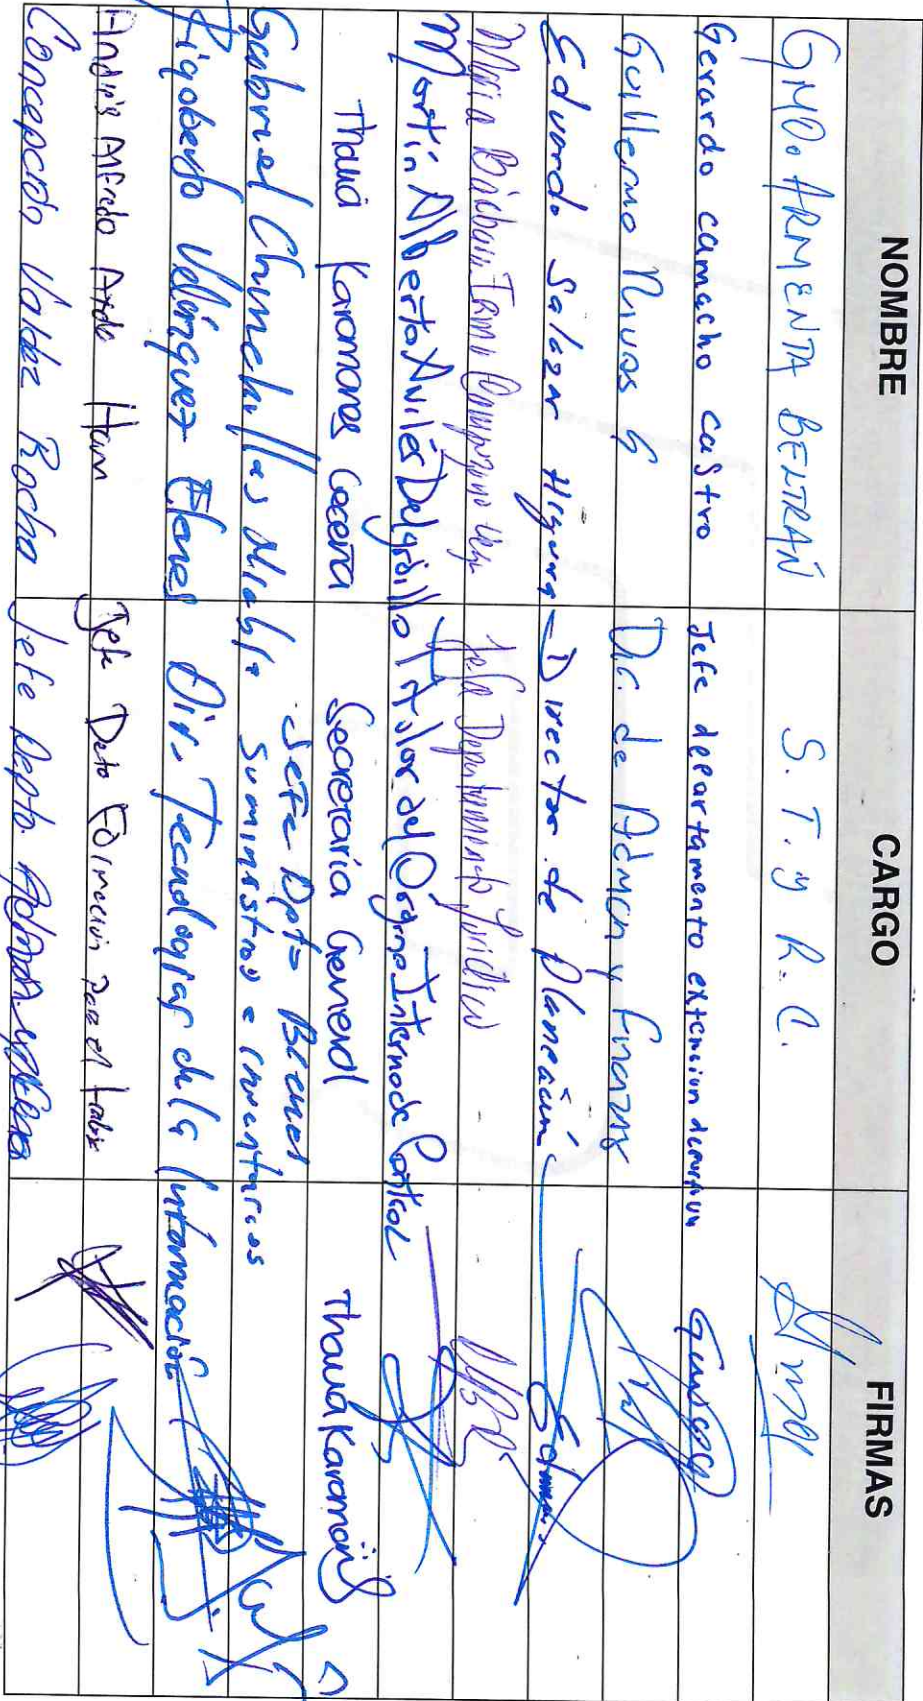 NOMBRE CARGO FIRMAS
GMO. ARMENTA BELTRÁN S. T. y R. C.
Gerardo camacho castro Jefe departamento extencion deportiva
Guillermo Rivas G Dir. de Admon y Finanzas
Eduardo Salazar Higuera Director de Planeación
Maria Bárbara Irma Campaña Jefa Departamento Jurídico
Martín Alberto Avilés Delgadillo Titular del Organo Interno de Control
Thania Karamanos Cecena Secretaria General Thania Karamanos
Gabriel Chinchillas Jefe Dpto Bienes
Suministros e inventarios
Rigoberto Velázquez Elenes Dir. Tecnologías de la Información
Andrés Alfredo Ham Jefe Depto Formación Para el trabajo
Concepción Valdez Rocha Jefe Depto.